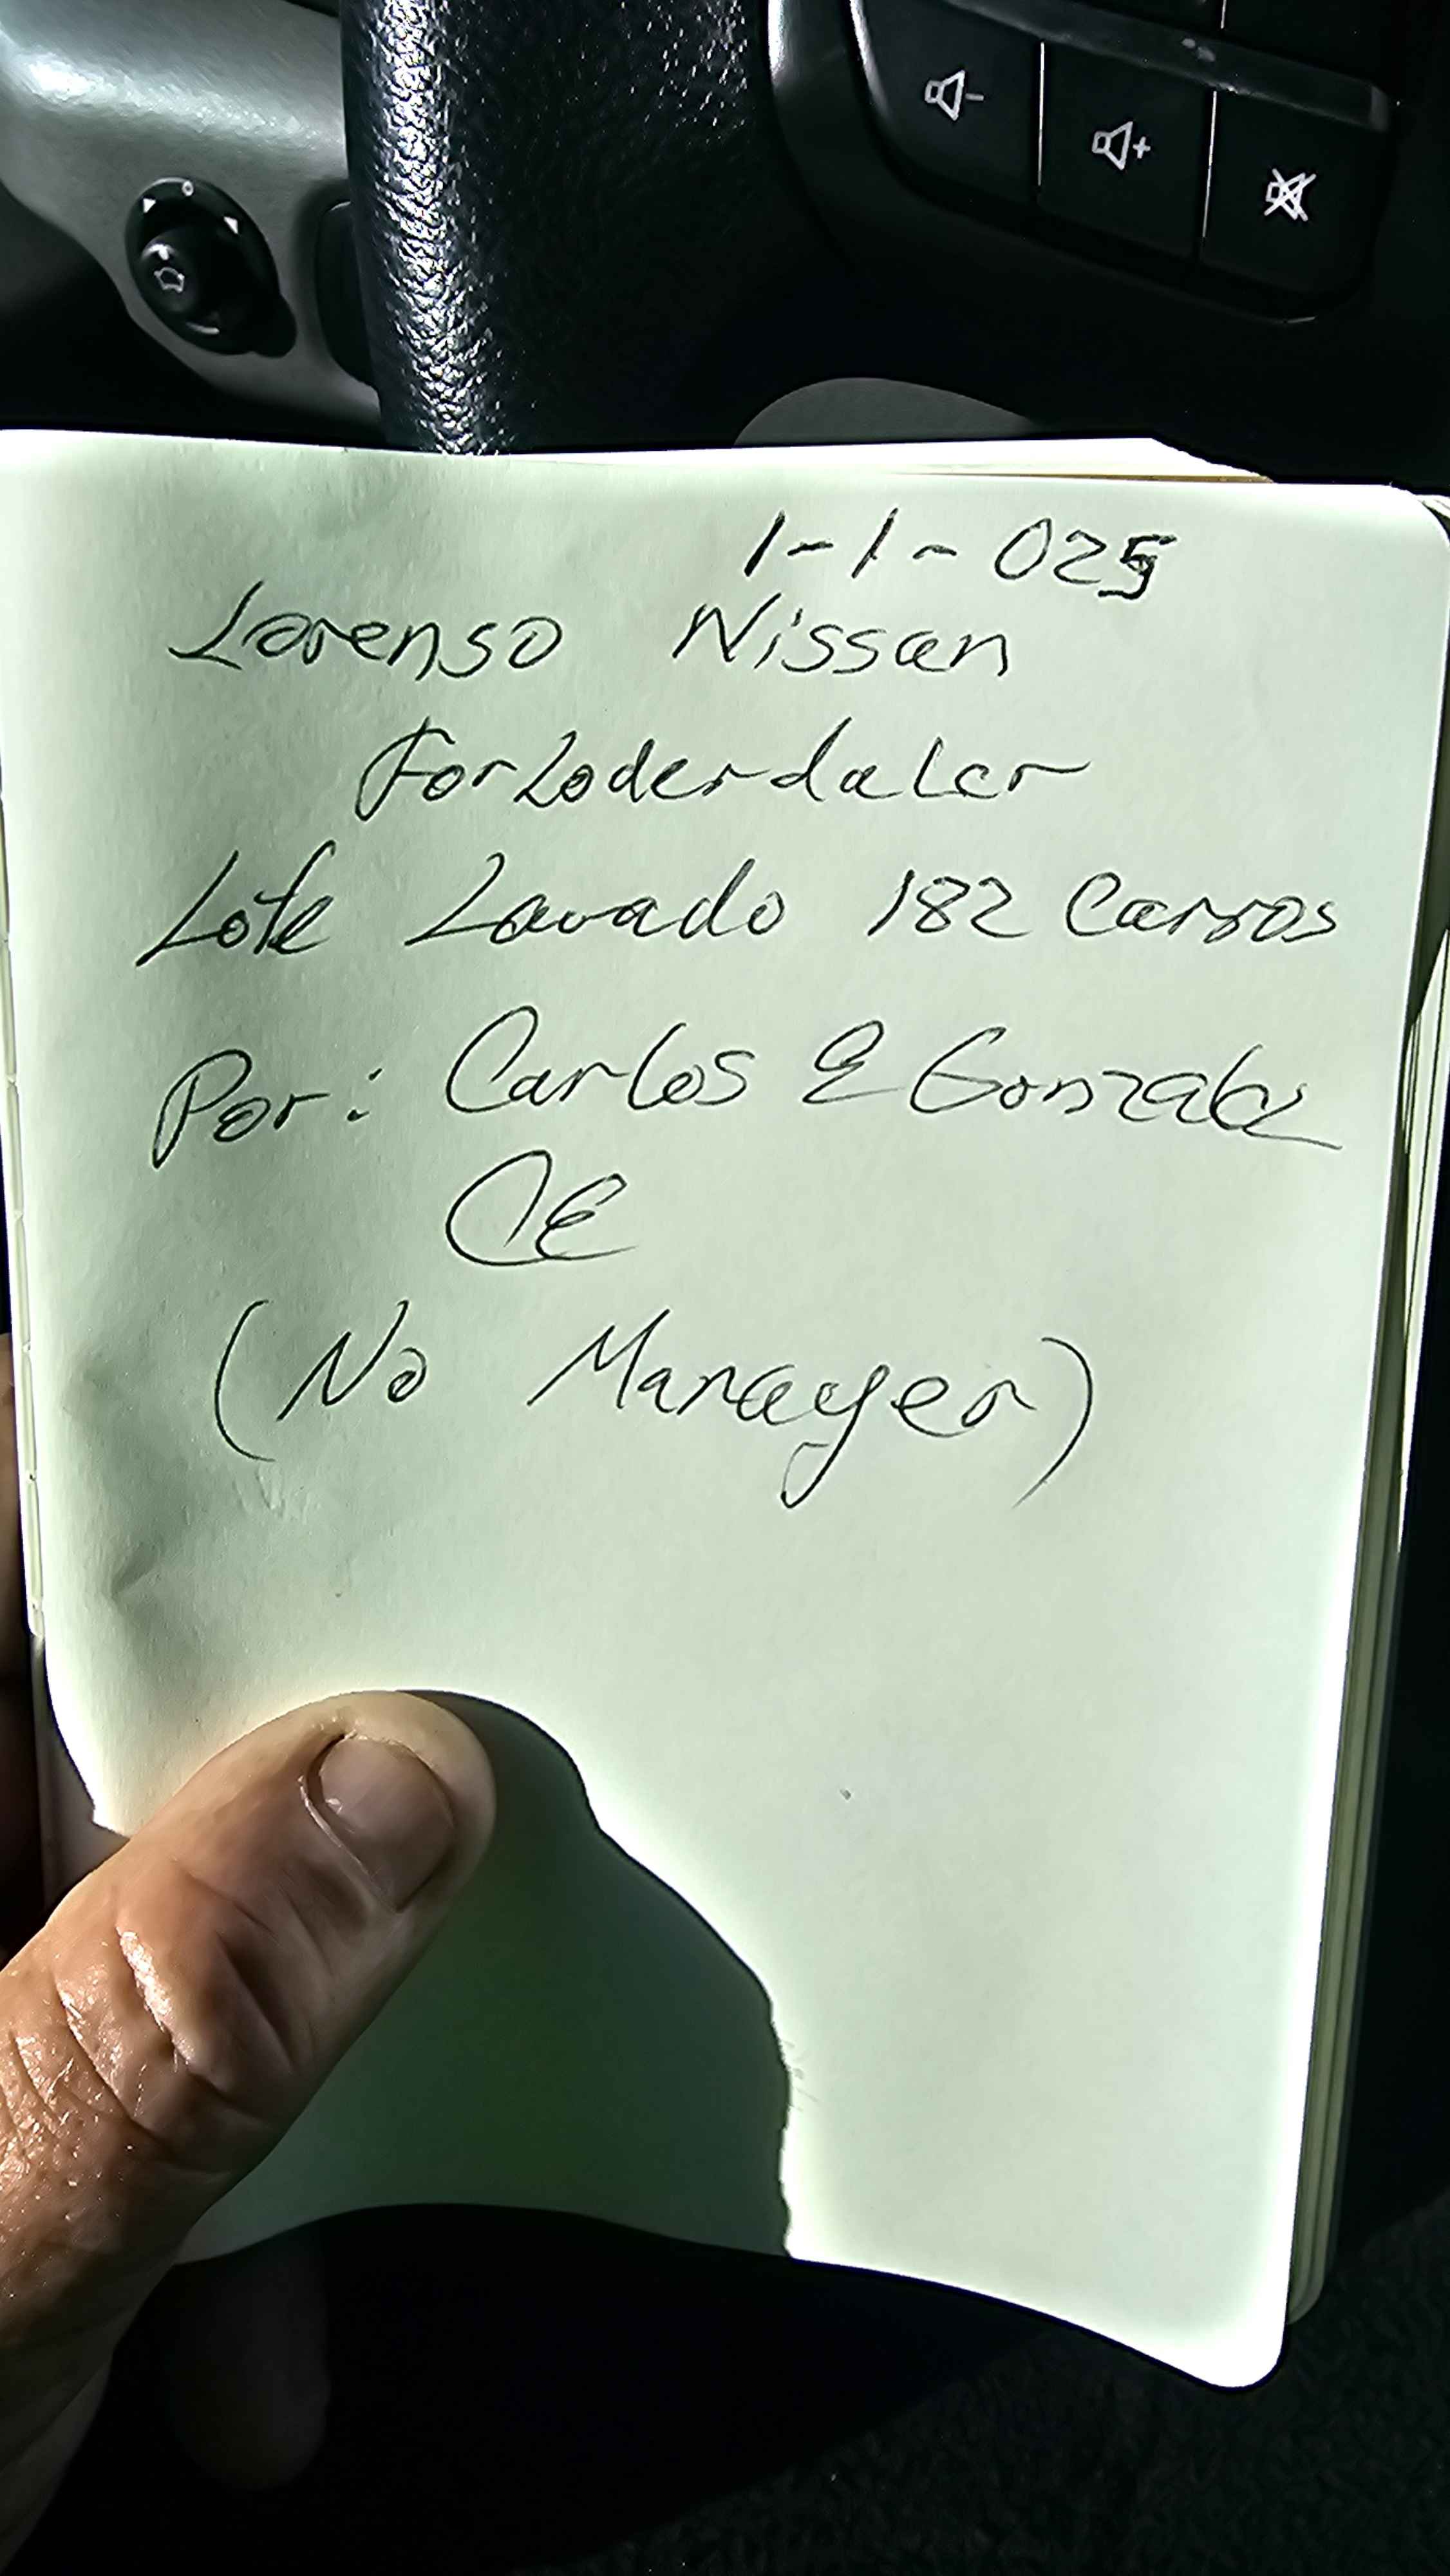 1-1-025
Lorenso Nissan
ForLoderdaler
Lote Lavado 182 Carros
Por: Carlos E Gonzalez
CE
(No Manager)